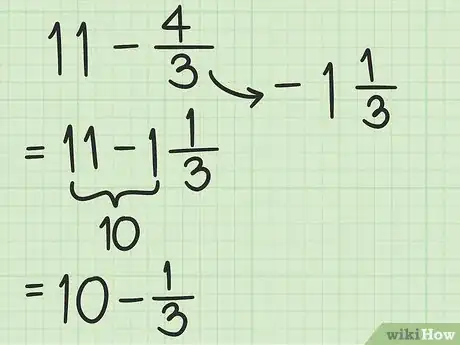 11 - 4/3 → - 1 1/3
= 11 - 1 1/3
10
= 10 - 1/3
wikiHow